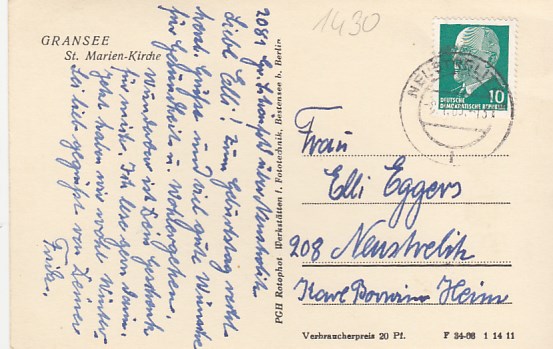 GRANSEE
St. Marien-Kirche
1430
2081
Neustrelitz
Liebe Elli! Zum Geburtstag recht
herzl. Grüße und viel gute Wünsche
für Gesundheit u. Wohlergehen.
Wunderbar ist Dein Geschenk
für mich. Ich lese gern darin.
Jetzt haben wir wohl Winter.
Sei lieb gegrüßt von Deiner
Frida.
PGH Rotophot Werkstätten f. Fototechnik, Bestensee b. Berlin
10
DEUTSCHE
DEMOKRATISCHE REPUBLIK
Frau
Elli Eggers
208 Neustrelitz
Karl Borwin Heim
Verbraucherpreis 20 Pf. F 34-66 1 14 11